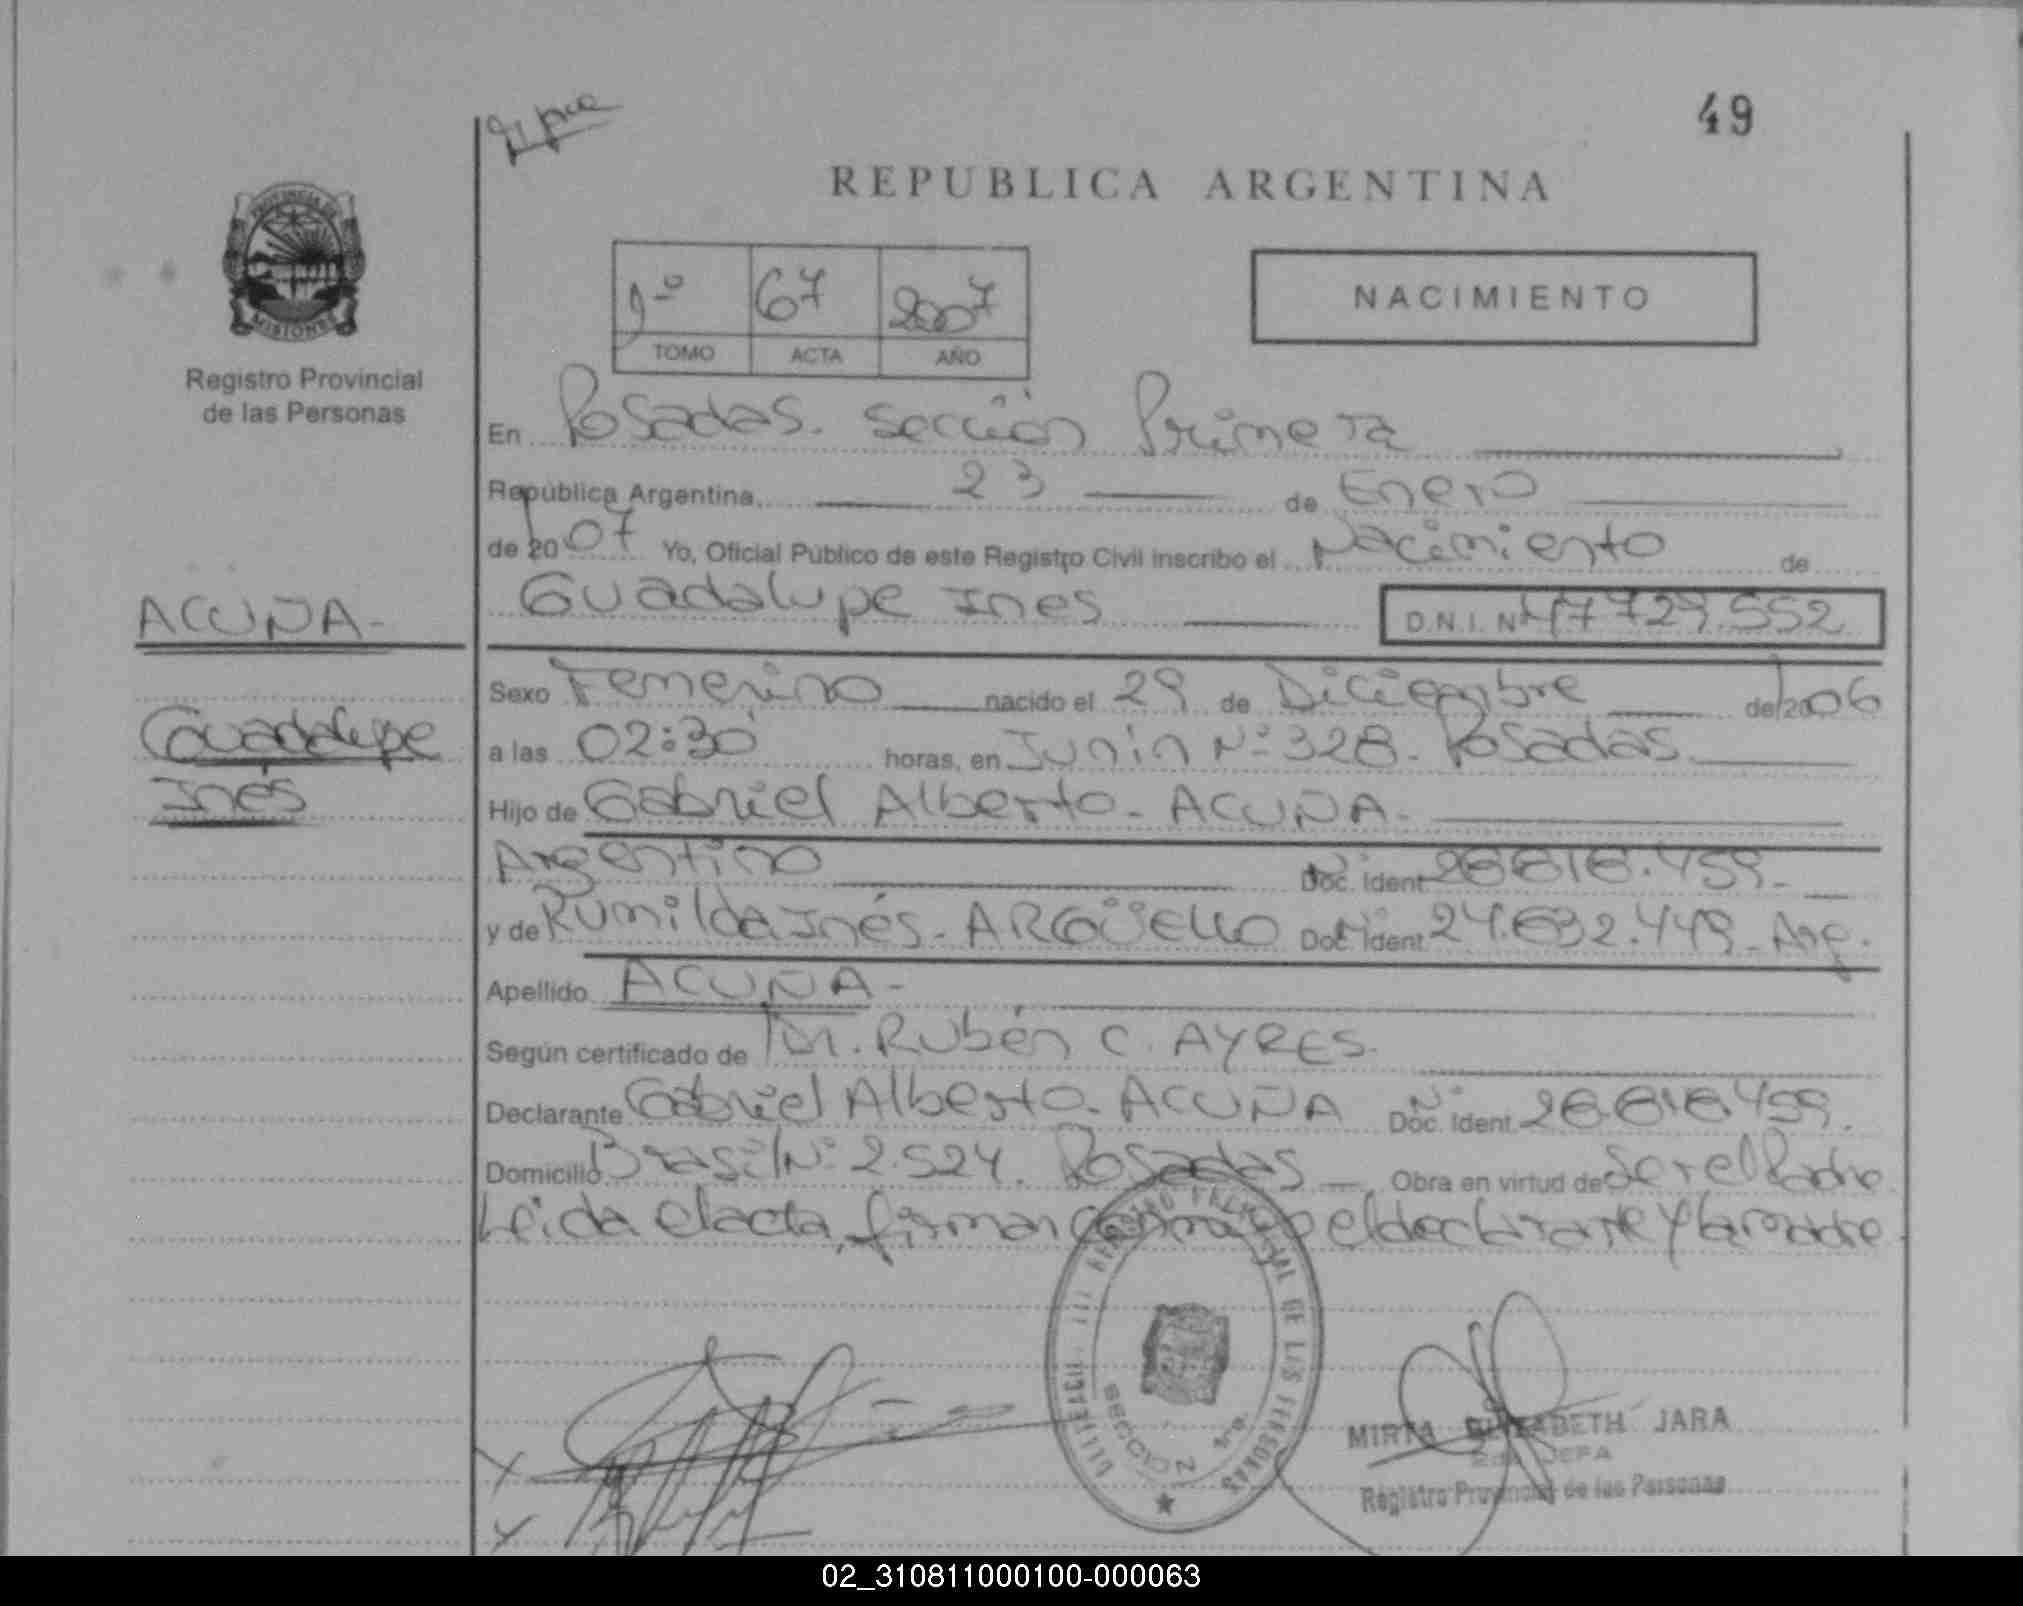 49
REPUBLICA ARGENTINA
PROVINCIA DE
MISIONES
Registro Provincial
de las Personas
1º 67 2007
TOMO ACTA AÑO
NACIMIENTO
En Posadas. Sección Primera
República Argentina, 23 de Enero
de 2007 Yo, Oficial Público de este Registro Civil inscribo el Nacimiento de
Guadalupe Ines D.N.I. Nº 47.729.552
ACUÑA-
Guadalupe
Inés
Sexo Femenino nacido el 29 de Diciembre de 2006
a las 02:30 horas, en Junín Nº 328. Posadas
Hijo de Gabriel Alberto - ACUÑA.
Argentino Doc. Ident
y de Rumilda Inés - ARGÜELLO Doc. Ident 24.632.449 - Arg.
Apellido ACUÑA-
Según certificado de Dr. Rubén C. AYRES.
Declarante Gabriel Alberto - ACUÑA Doc. Ident.
Domicilio Brasil Nº 2.524. Posadas Obra en virtud de Ser el Padre
Leida el acta, firman conmigo el declarante y la madre
SECCION 1ra.
MIRTA ELIZABETH JARA
2da JEFA
Registro Provincial de las Personas
02_310811000100-000063